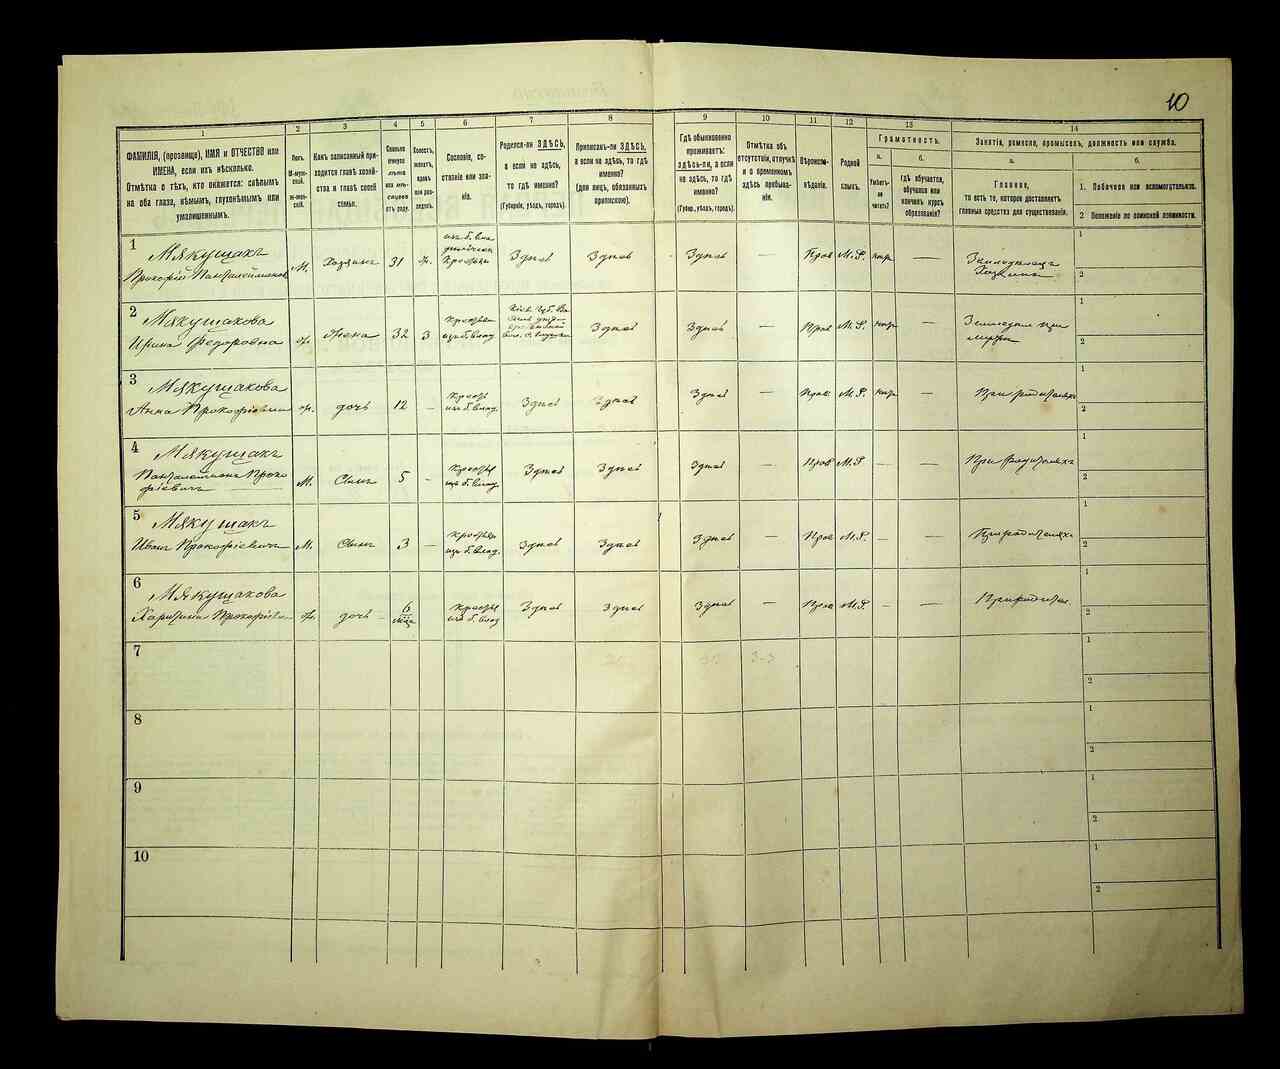 10
1 2 3 4 5 6 7 8 9 10 11 12 13 14
ФАМИЛІЯ, (прозвище), ИМЯ и ОТЧЕСТВО или
ИМЕНА, если ихъ нѣсколько.
Отмѣтка о тѣхъ, кто окажется: слѣпымъ
на оба глаза, нѣмымъ, глухонѣмымъ или
умалишеннымъ.
Полъ.
М-муж-
ской.
Ж-жен-
скій.
Какъ записанный при-
ходится главѣ хозяй-
ства и главѣ своей
семьи.
Сколько
минуло
лѣтъ
или мѣ-
сяцевъ
отъ роду.
Холостъ,
женатъ,
вдовъ
или раз-
веденъ.
Сословіе, со-
стояніе или зва-
ніе.
Родился-ли ЗДѢСЬ,
а если не здѣсь,
то гдѣ именно?
(Губернія, уѣздъ, городъ).
Приписанъ-ли ЗДѢСЬ,
а если не здѣсь, то гдѣ
именно?
(для лицъ, обязанныхъ
припискою).
Гдѣ обыкновенно
проживаетъ:
здѣсь-ли, а если
не здѣсь, то гдѣ
именно?
(Губер., уѣздъ, городъ).
Отмѣтка объ
отсутствіи, отлучкѣ
и о временномъ
здѣсь пребыва-
ніи.
Вѣроиспо-
вѣданіе.
Родной
языкъ.
Грамотность.
а.
Умѣетъ-
ли
читать?
б.
гдѣ обучается,
обучался или
кончилъ курсъ
образованія?
Занятія, ремесло, промыселъ, должность или служба.
а.
Главное,
то есть то, которое доставляетъ
главныя средства для существованія.
б.
1. Побочное или вспомогательное.
2 Положеніе по воинской повинности.
1
Мякушакъ
Прокофій Панталеймонов
М. Хозяинъ 31 ж.
из б. вла
дѣльческ
Крестьян
Здѣсь Здѣсь Здѣсь — Прав М.Р. нгр —
Земледѣлецъ
Хозяинъ
1
2
2
Мякушакова
Ирина Федоровна
ж. Жена 32 з
крестьян
изъ б. влад.
Кіев. Губ. Ва
Здѣсь Здѣсь — Прав М.Р. нгр —
Земледел при
мужѣ
1
2
3
Мякушакова
Анна Прокофіевна
ж. дочь 12 —
Крест
из б. влад.
Здѣсь Здѣсь Здѣсь — Прав М.Р. нгр —
При родителяхъ
1
2
4
Мякушакъ
Панталеймонъ Проко
фіевичъ
М. Сынъ 5 —
крестья
из б. влад.
Здѣсь Здѣсь Здѣсь — Прав М.Р. — —
При родителяхъ
1
2
5
Мякушакъ
Иванъ Прокофіевичъ
М. Сынъ 3 —
крестьян
из б. влад.
Здѣсь Здѣсь Здѣсь — Прав М.Р. — —
При родителяхъ
1
2
6
Мякушакова
Харитина Прокофіевн
ж. дочь 6 мѣс —
крестья
из б. влад
Здѣсь Здѣсь Здѣсь — Прав М.Р. — —
При родител.
1
2
7
1
2
8
1
2
9
1
2
10
1
2